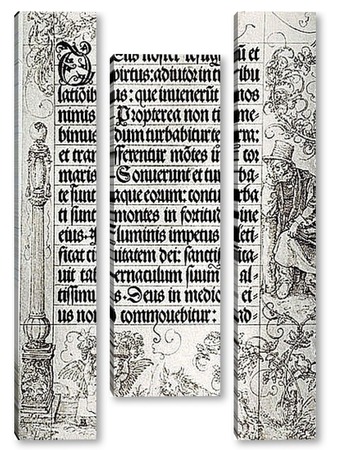 Deus noster refugiū et
virtus: adiutor in tribu
latiōibus: que inuenerūt nos
nimis. Propterea non time
bimus dum turbabitur terra:
et transferentur mōtes in cor
maris. Sonuerunt et turba
te sunt aque eorum: conturba
ti sunt montes in fortitudine
eius. Fluminis impetus leti
ficat ciuitatem dei: sanctifica
uit tabernaculum suum al-
tissimus. Deus in medio ei
us non commouebitur: ad-